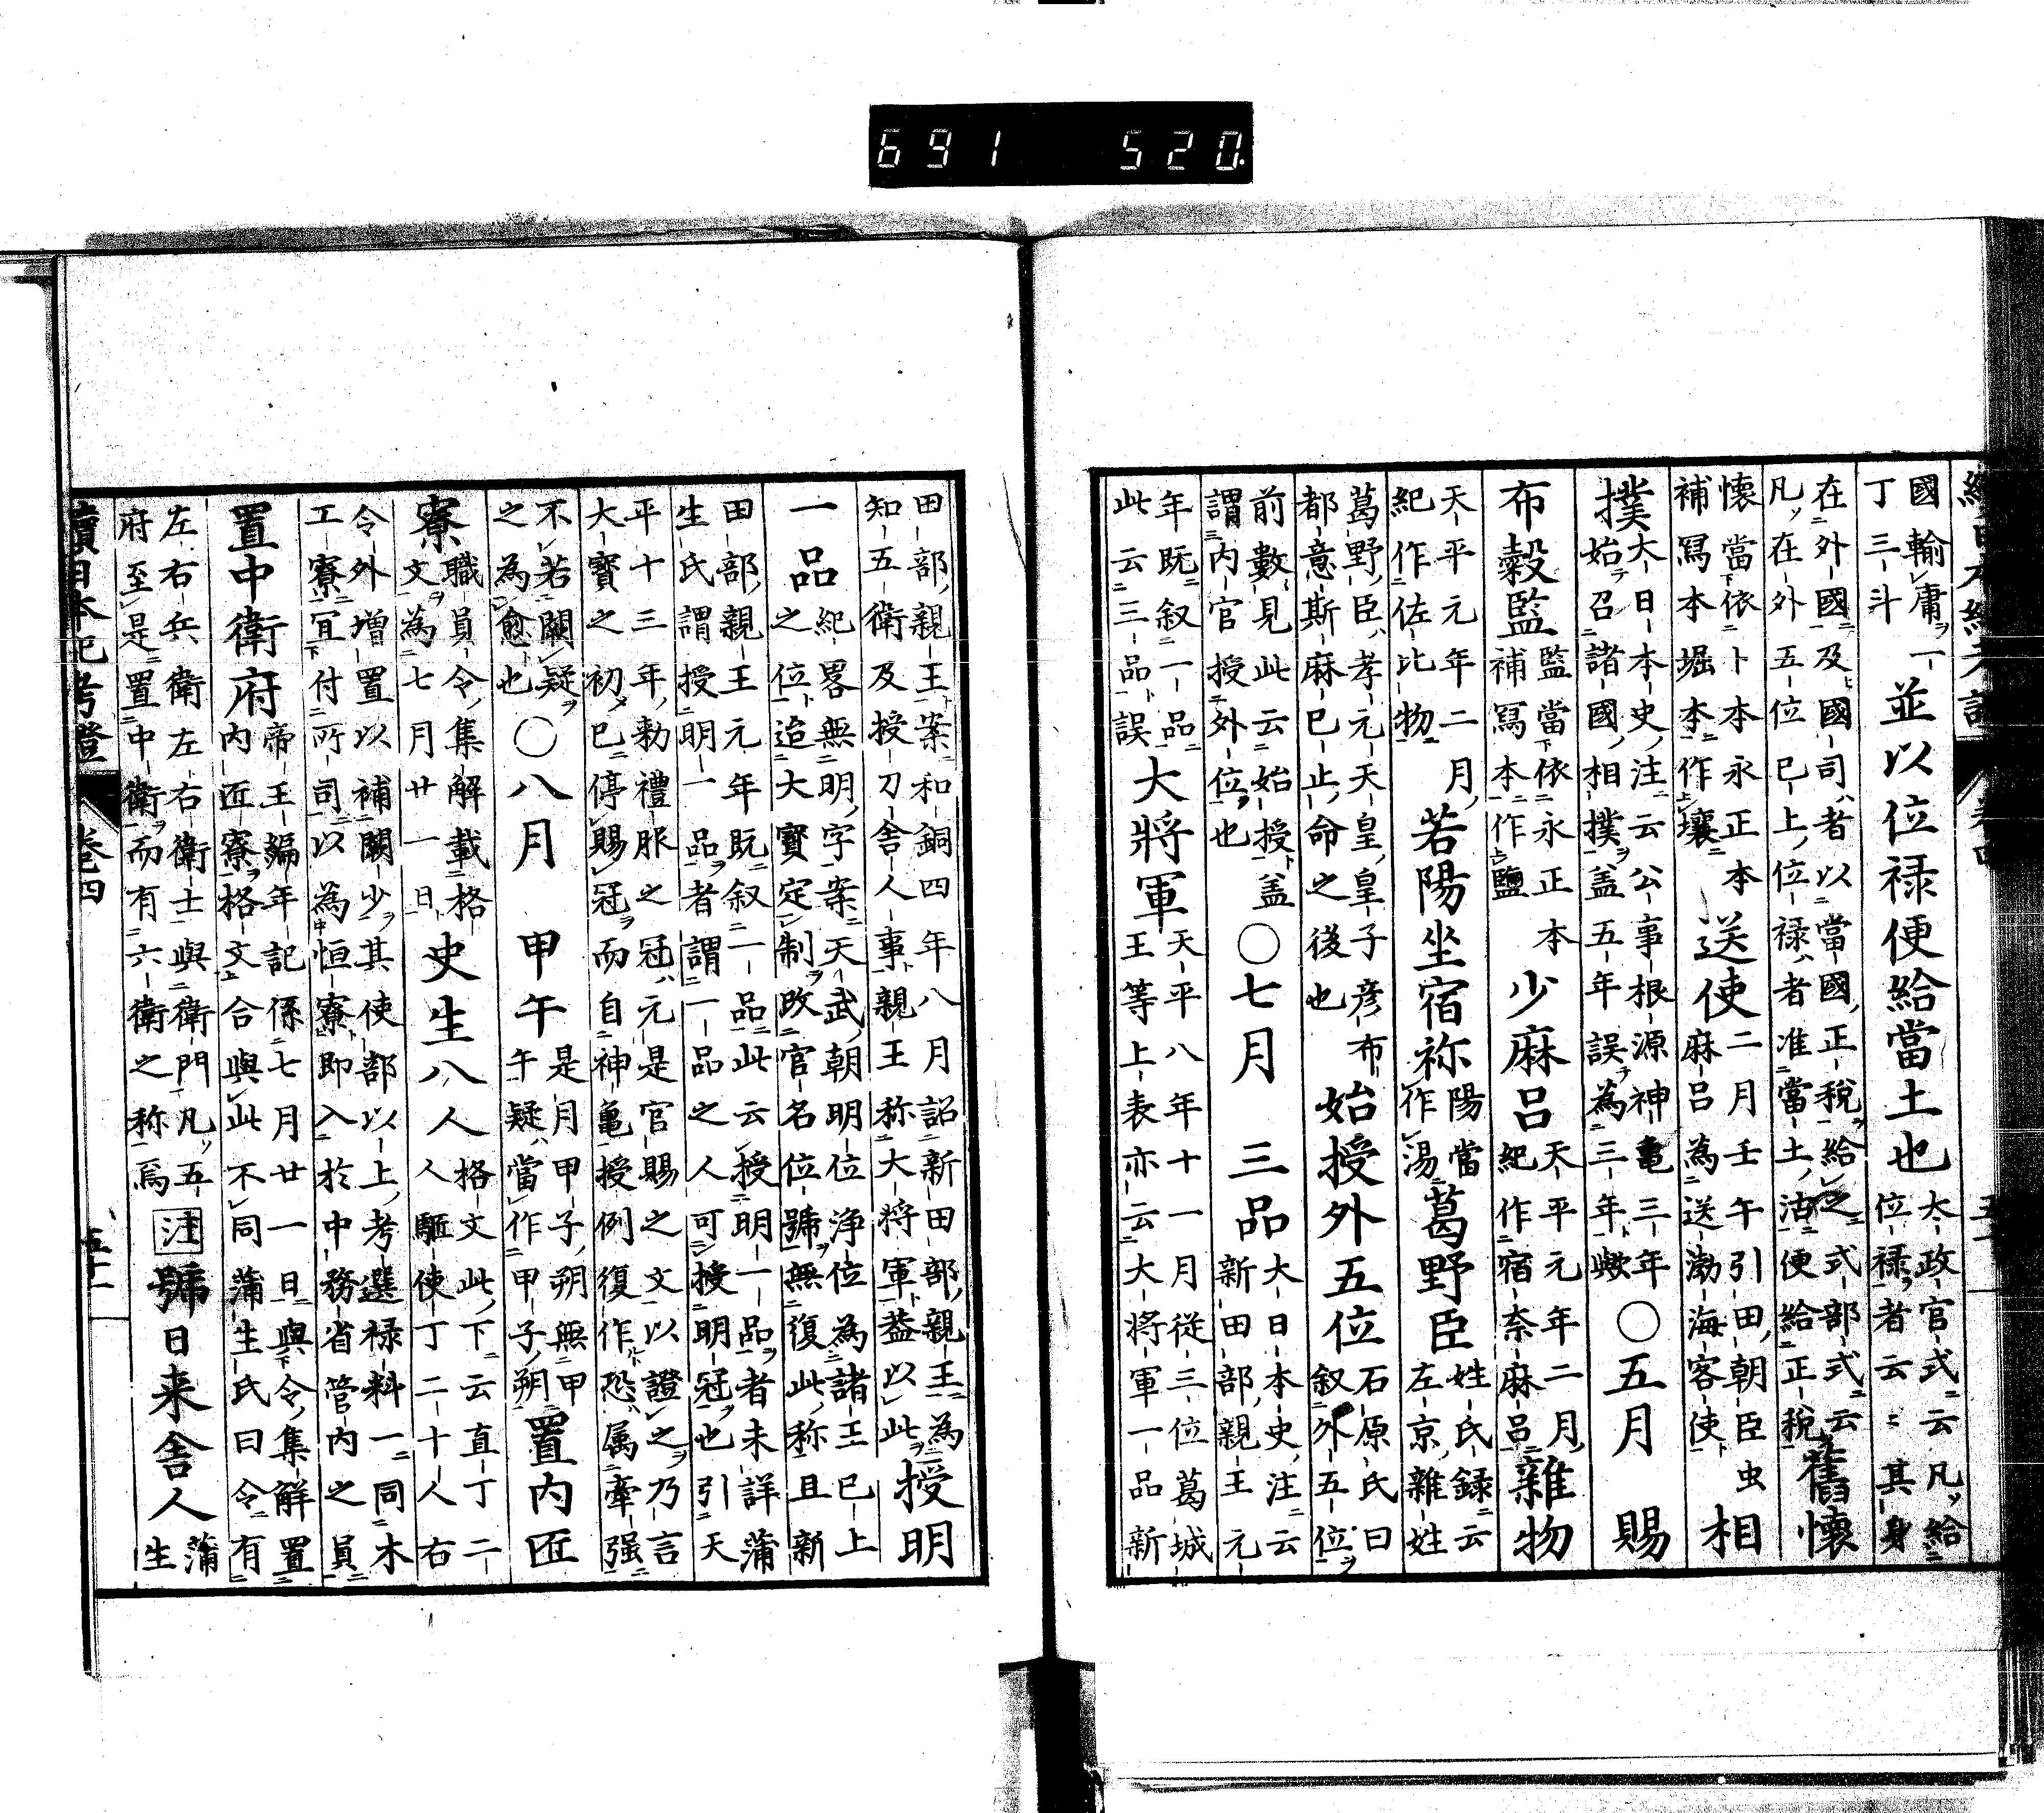 國輸庸一丁三斗 並以位禄便給當土也 大政官式云凡給位禄者云〻其身
在外國及國司者以當國正税給之式部式云凡在外五位已上位禄者准當土沽便給正税 舊懷
懷當依卜本永正本補冩本堀本作壤 送使 二月壬午引田朝臣虫麻呂為送渤海客使 相
撲 大日本史注云公事根源神亀三年始召諸國相撲盖五年誤為三年歟 ○五月 賜
布穀監 監當依永正本補冩本作鹽 少麻呂 天平元年二月紀作宿奈麻呂 雜物
天平元年二月紀作佐比物 若陽坐宿祢 陽當作湯 葛野臣 姓氏録云左京雜姓
葛野臣孝元天皇皇子彦布都意斯麻己止命之後也 始授外五位 石原氏曰叙外五位
前數見此云始授盖謂内官授外位也 ○七月 三品 大日本史注云新田部親王元
年既叙一品此云三品誤 大將軍 天平八年十一月從三位葛城王等上表亦云大将軍一品新
田部親王案和銅四年八月詔新田部親王為知五衛及授刀舎人事親王称大将軍葢以此 授明
一品 紀畧無明字案天武朝明位浄位為諸王已上之位追大寳定制改官名位號無復此称且新
田部親王元年既叙一品此云授明一品者未詳蒲生氏謂授明一品者謂一品之人可授明冠也引天
平十三年勅禮服之冠元是官賜之文以證之乃言大寳之初已停賜冠而自神亀授例復作恐属牽强
不若闕疑之為愈也 ○八月 甲午 是月甲子朔無甲午疑當作甲子朔 置内匠
寮 職員令集解載格文為七月廿一日 史生八人 格文此下云直丁二人駈使丁二十人右
令外増置以補闕少其使部以上考選禄料一同木工寮冝付所司以為恒寮即入於中務省管内之員
置中衛府 帝王編年記係七月廿一日與令集解置内匠寮格文合與此不同蒲生氏曰令有
左右兵衛左右衛士與衛門凡五府至是置中衛而有六衛之称焉 注 號曰来舎人 蒲生
續日本紀考證 卷四 五十一
691 520